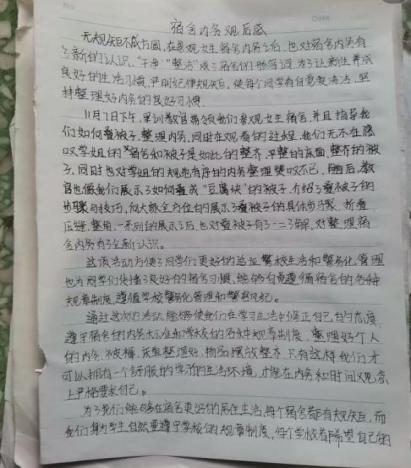 宿舍内务观后感
无规矩不成方圆,在参观女生宿舍内务之后,也对宿舍内务有
了新的认识,"干净""整洁"成了宿舍的代名词,为了让新生养成
良好的生活习惯,严明纪律规矩,使每个同学有自觉意识,坚
持整理好内务的良好习惯。
11月7日下午,军训教官带领我们参观女生宿舍,并且指导我
们如何叠被子,整理内务,同时在观看的过程,他们无不在感
叹学姐的宿舍和被子是如此的整齐,平整的床面,整齐的被
子,同时也对学姐的规范有序的内务整理赞叹不已,随后,教
官也做我们展示了如何叠成"豆腐块"的被子,介绍了叠被子的
步骤与技巧,向大家全方位的展示了叠被子的具体步骤,折叠
压缝,整角,一系列的展示之后,也对叠被子有了一二了解,对整理宿
舍内务有了全新认识。
这次活动方便了同学们更好的适应警校生活和警务化管理
也为同学们传播了良好的宿舍习惯,能够自觉遵循宿舍的各种
规章制度,遵循学校警务化管理和警容风纪。
通过这次的活动能够使我们在学习生活中修正自己的行为态度,
遵守宿舍的内务标准和学校的各种规章制度,整理好个人
的内务,被褥,床单整理好,物品摆放整齐,只有这样我们才
可以拥有一个舒服的学习的生活环境,才能在内务和时间观念
上严格要求自己。
为了我们能够在宿舍更好的居住生活,每个宿舍都有规矩,而
我们身为学生自然要遵守学校的规章制度,每个学校都希望自己的